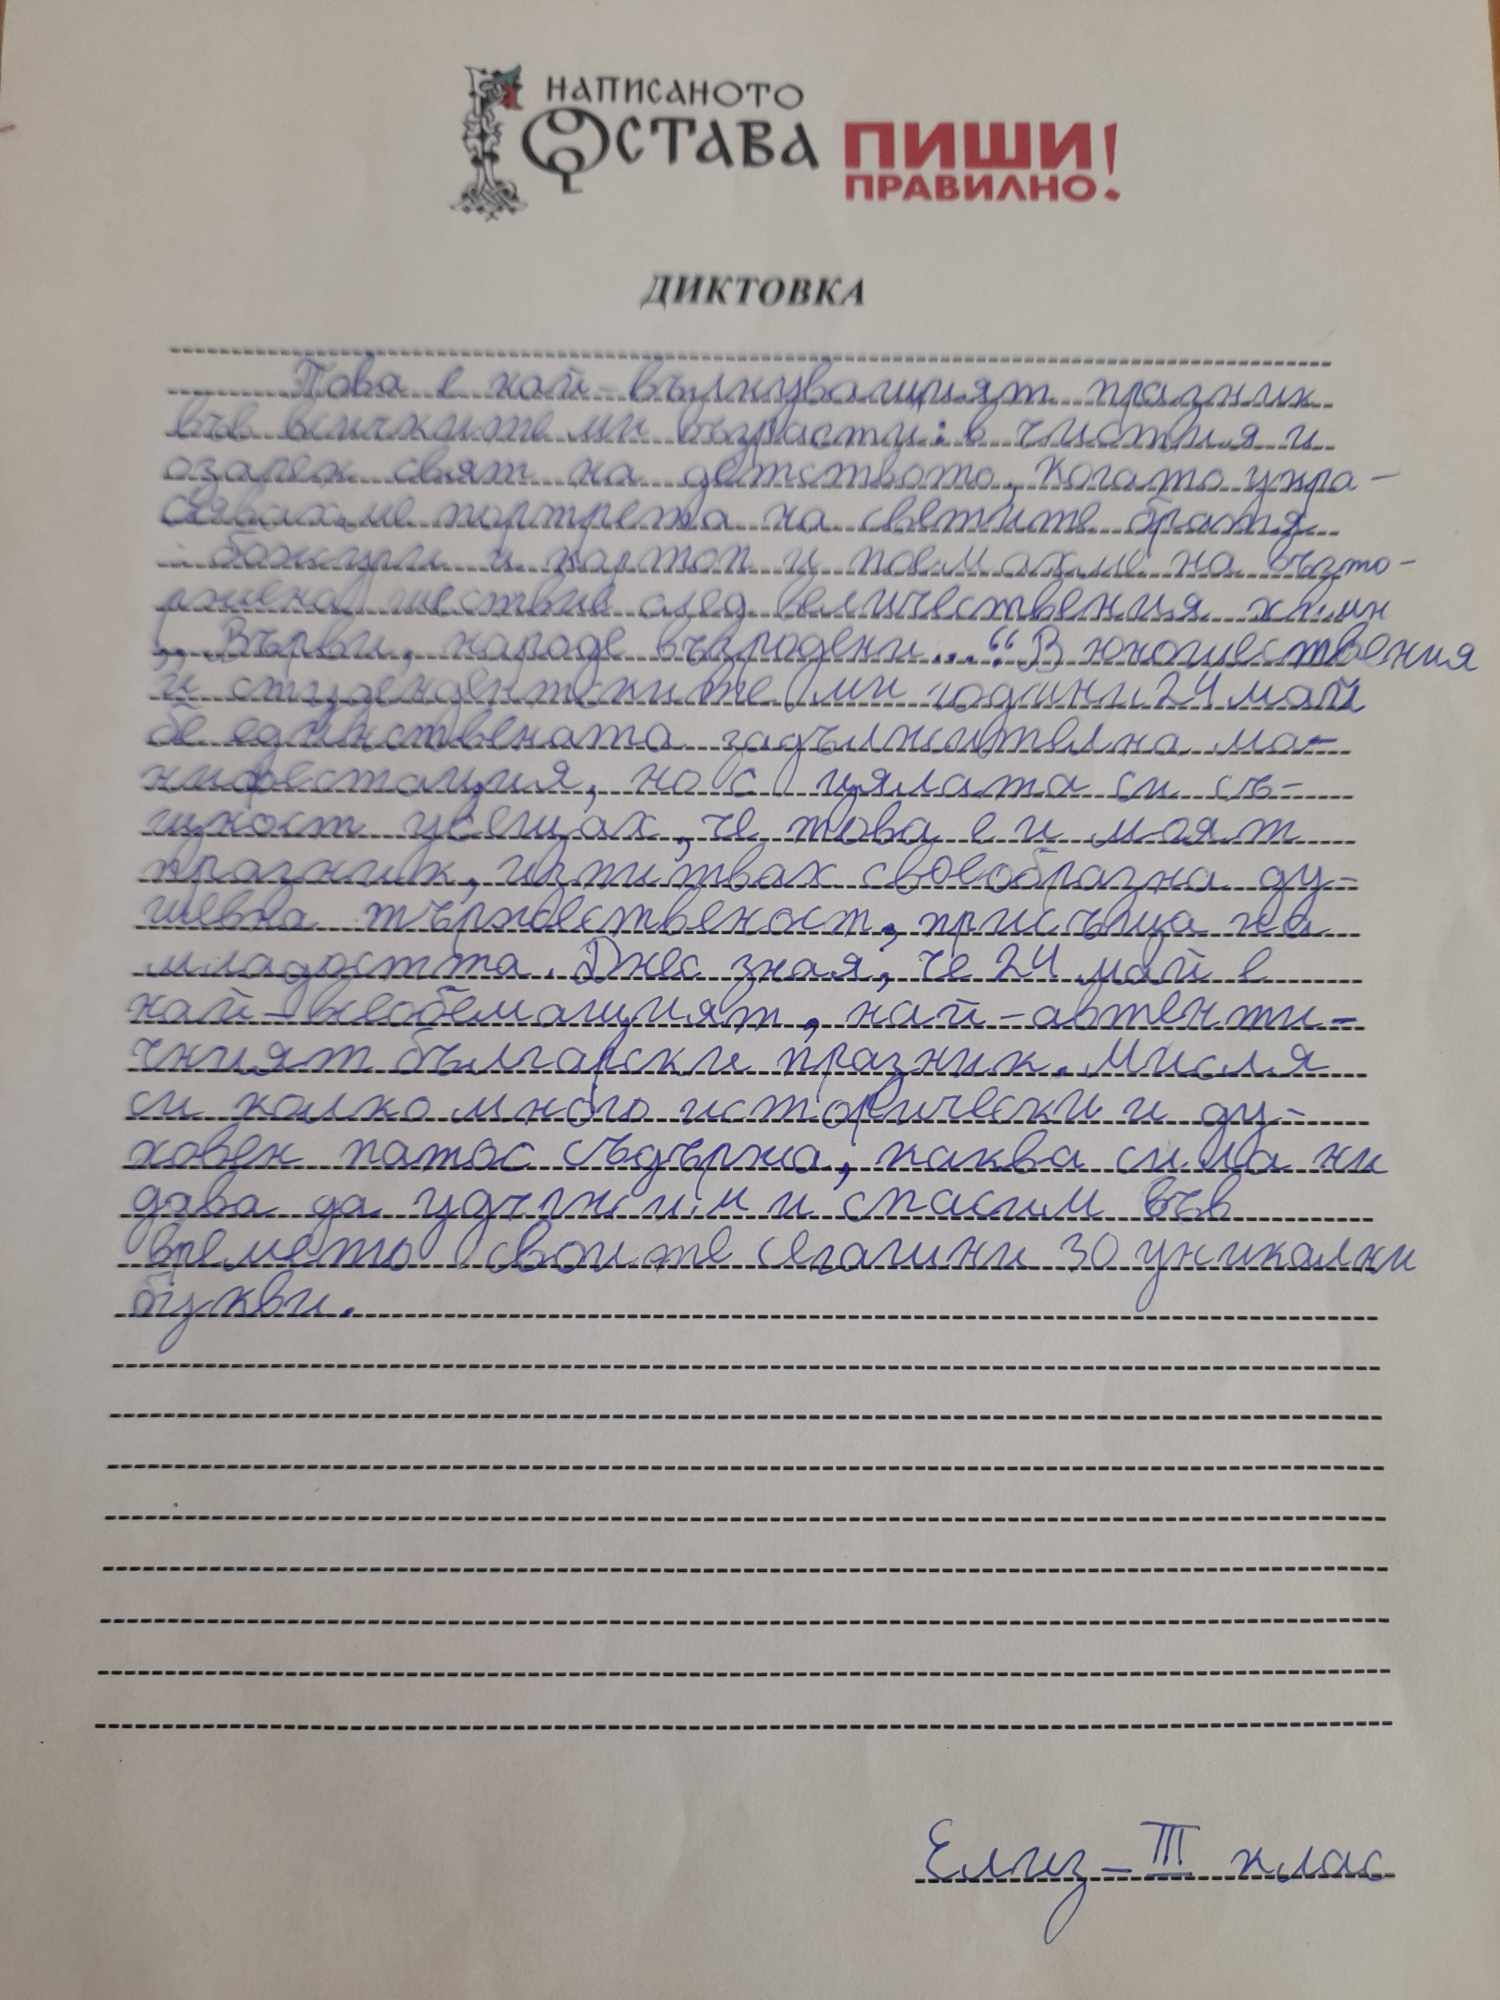 НАПИСАНОТО
ОСТАВА ПИШИ!
ПРАВИЛНО!
ДИКТОВКА
Това е най-вълнуващият празник
във всичките ми възрасти: в чистия и
озарен свят на детството, когато укра-
сявахме портрета на светите братя
с божури и картон и поемахме на възто-
ржена шествие след величествения химн
„Върви, народе възродени...“. В юношествения
и студендентските ми години 24 май
бе единствената задължителна ма-
нифестация, но с цялата си съ-
щност усещах, че това е и моят
празник, изпитвах своеобразна ду-
шевна тържественост, присъща на
младостта. Днес зная, че 24 май е
най-всеобемащият, най-автенти-
чният български празник. Мисля
си колко много исторически и ду-
ховен патос съдържа, каква сила ни
дава да удължим и спасим във
времето своите сегашни 30 уникални
букви.
Елиз - III клас